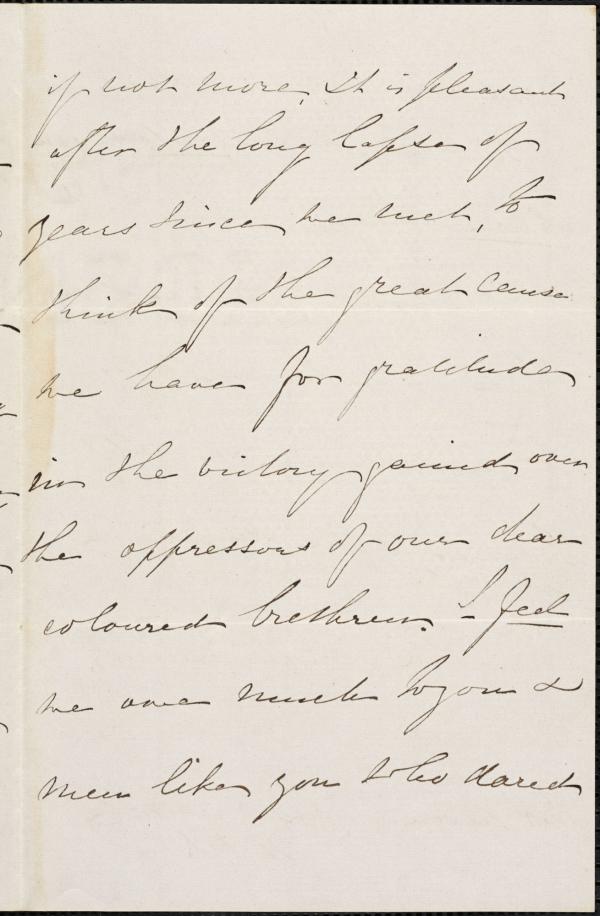 if not more. It is pleasant
after the long lapse of
years since we met, to
think of the great cause
we have for gratitude
in the victory gained over
the oppressors of our dear
coloured brethren. I feel
we owe much to you &
men like you who dared